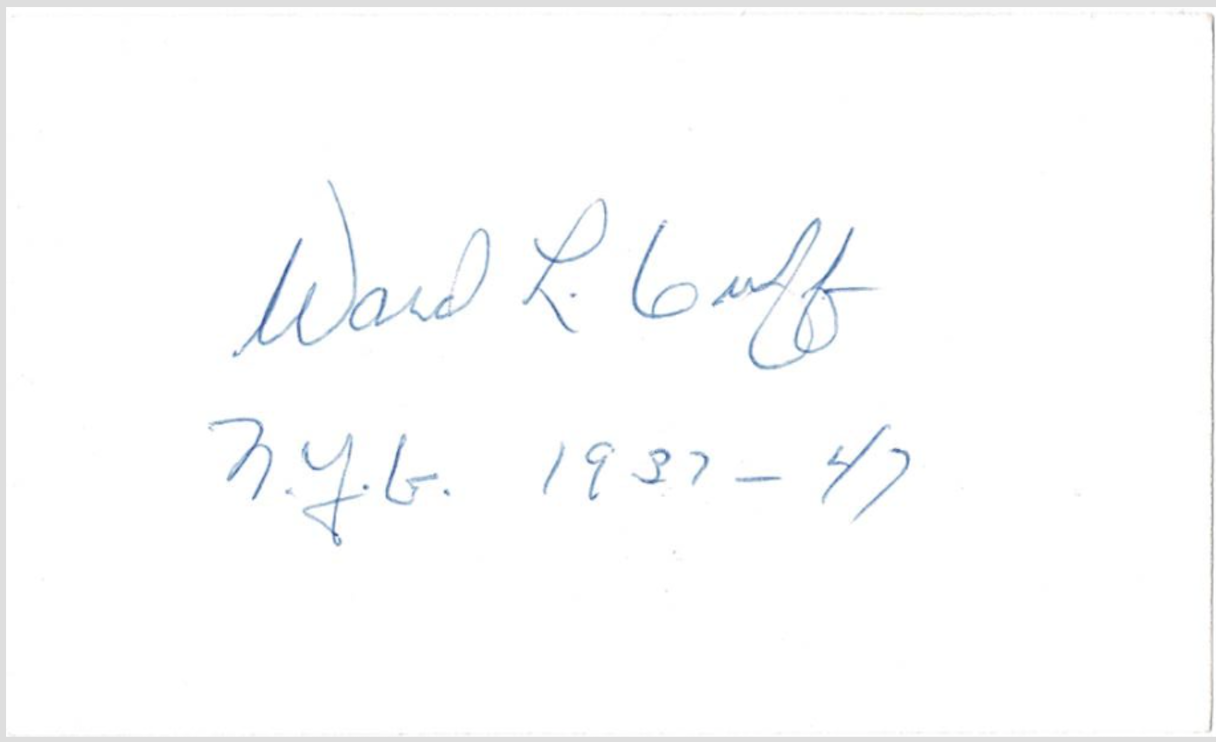 Ward L. Cuff
N.Y.G. 1937 - 47